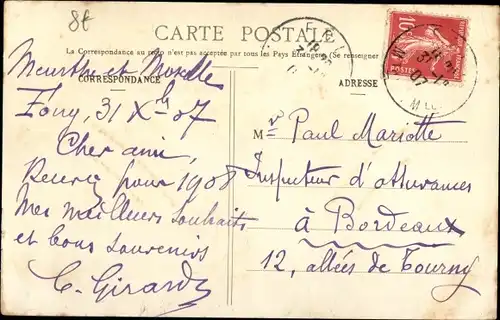 8f
CARTE POSTALE
La Correspondance au recto n'est pas acceptée par tous les Pays Etrangers (Se renseigner
CORRESPONDANCE
ADRESSE
Meurthe et Moselle
Toul, 31 Xbre 07
Cher ami,
Recevez pour 1908
mes meilleurs souhaits
et bons souvenirs
C. Girard
Mr Paul Mariotte
Inspecteur d'assurances
à Bordeaux
12, allées de Tourny
10
POSTES